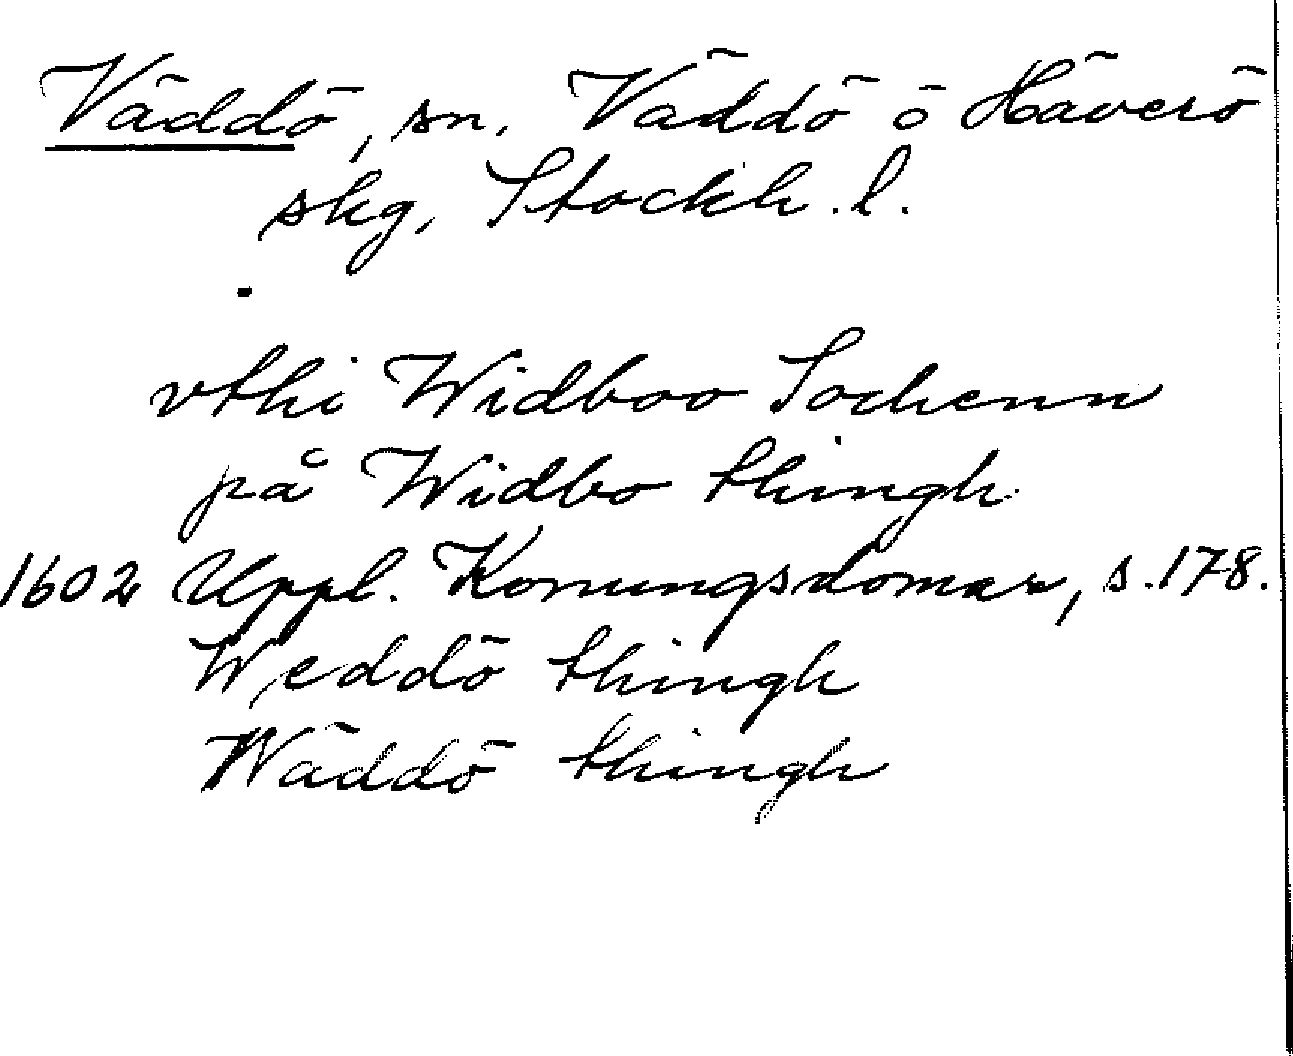 Väddö, sn. Väddö o Häverö
skg, Stockh. l.
vthi Widboo Sochenn
på Widbo thingh
1602 Uppl. Konungsdomar, s. 178.
Weddö thingh
Wäddö thingh